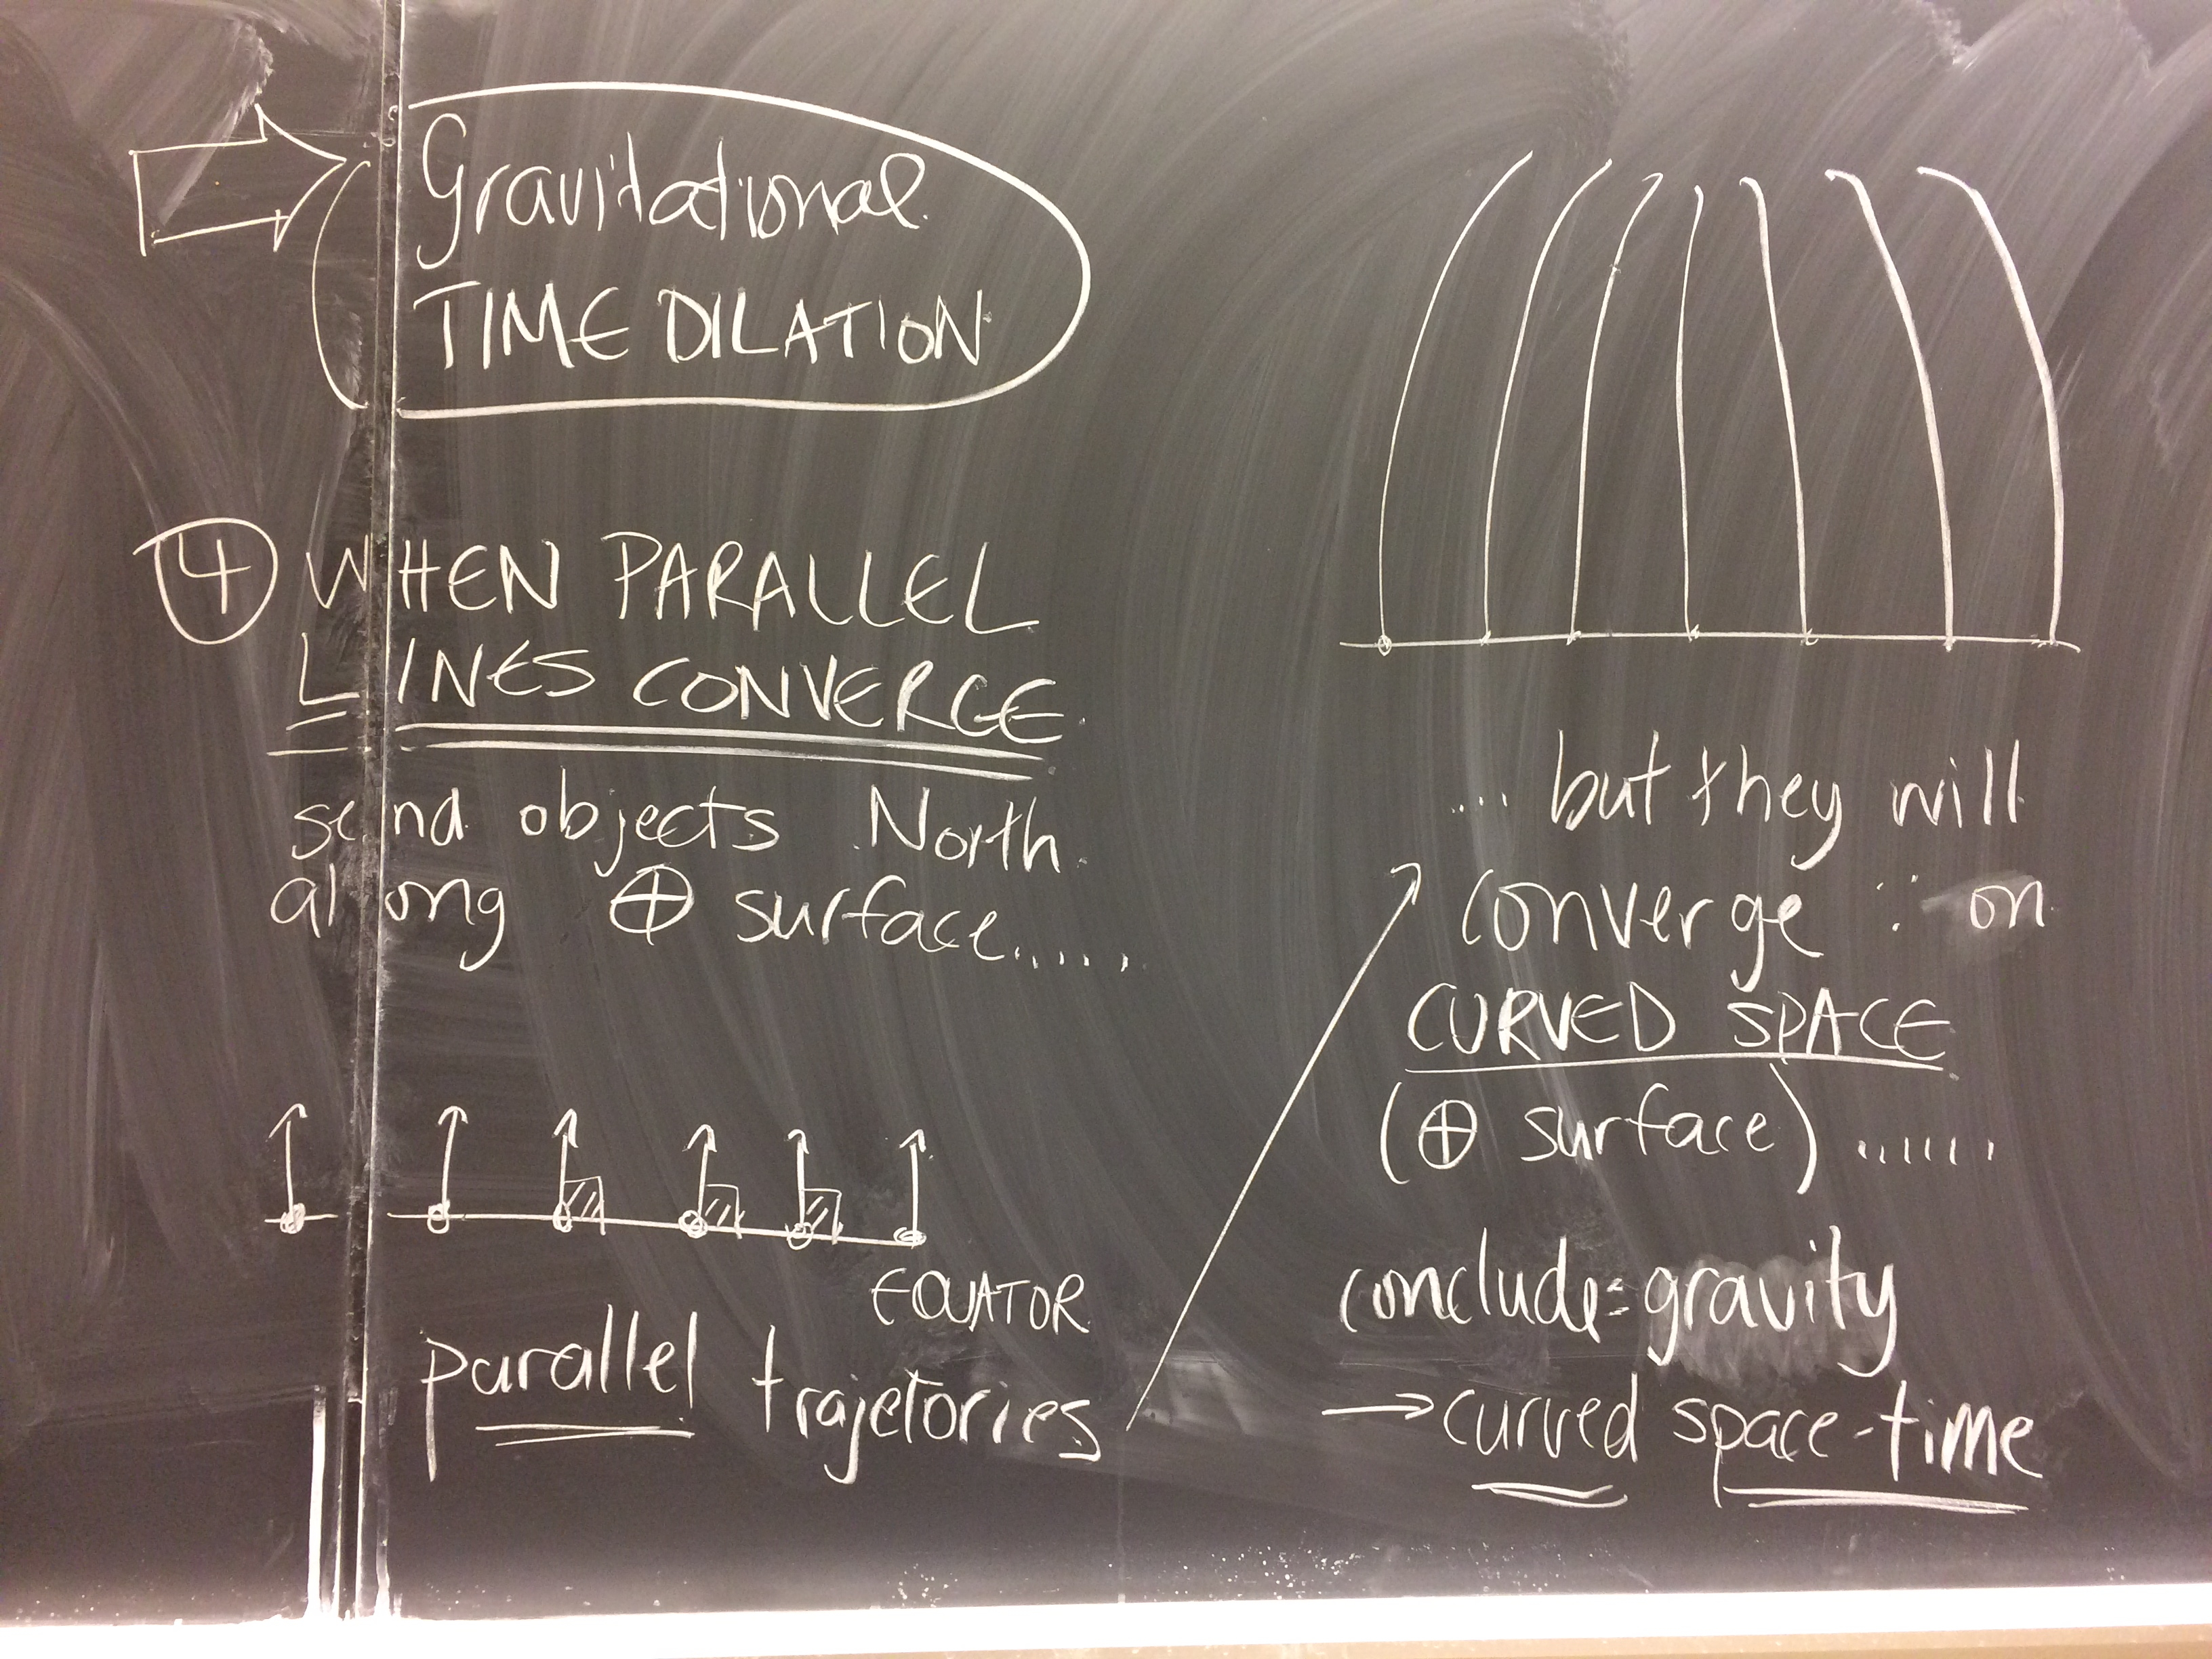 Gravitational
TIME DILATION
④ WHEN PARALLEL
LINES CONVERGE
send objects North
along ⊕ surface......
EQUATOR
parallel trajetories
... but they will
converge ∵ on
CURVED SPACE
(⊕ surface) ......
conclude: gravity
→ curved space-time